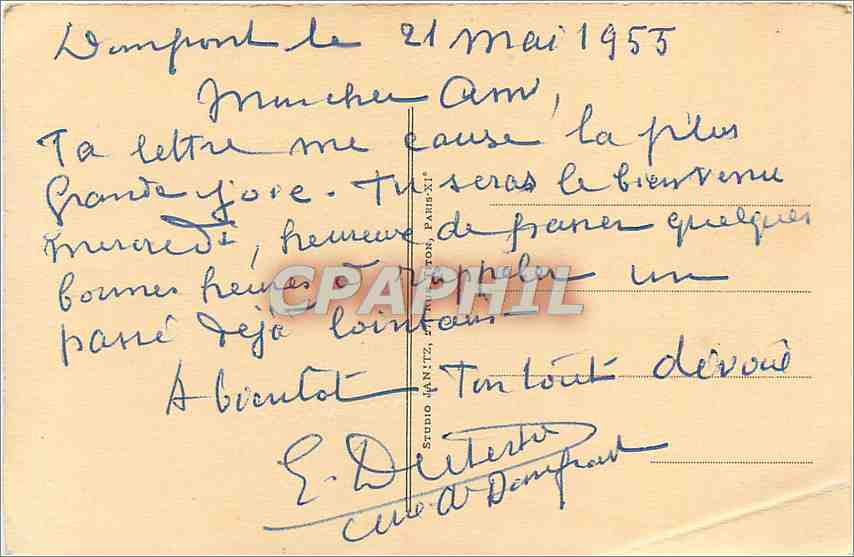 Domfront le 21 mai 1955
Mon cher Ami,
Ta lettre me cause la plus
grande joie. Tu seras le bienvenu
mercredi, heureux de passer quelques
bonnes heures à rappeler un
passé déjà lointain
A bientôt Ton tout dévoué
E.
Curé de Domfront
STUDIO JANITZ, PARIS-XIe
CPAPHIL